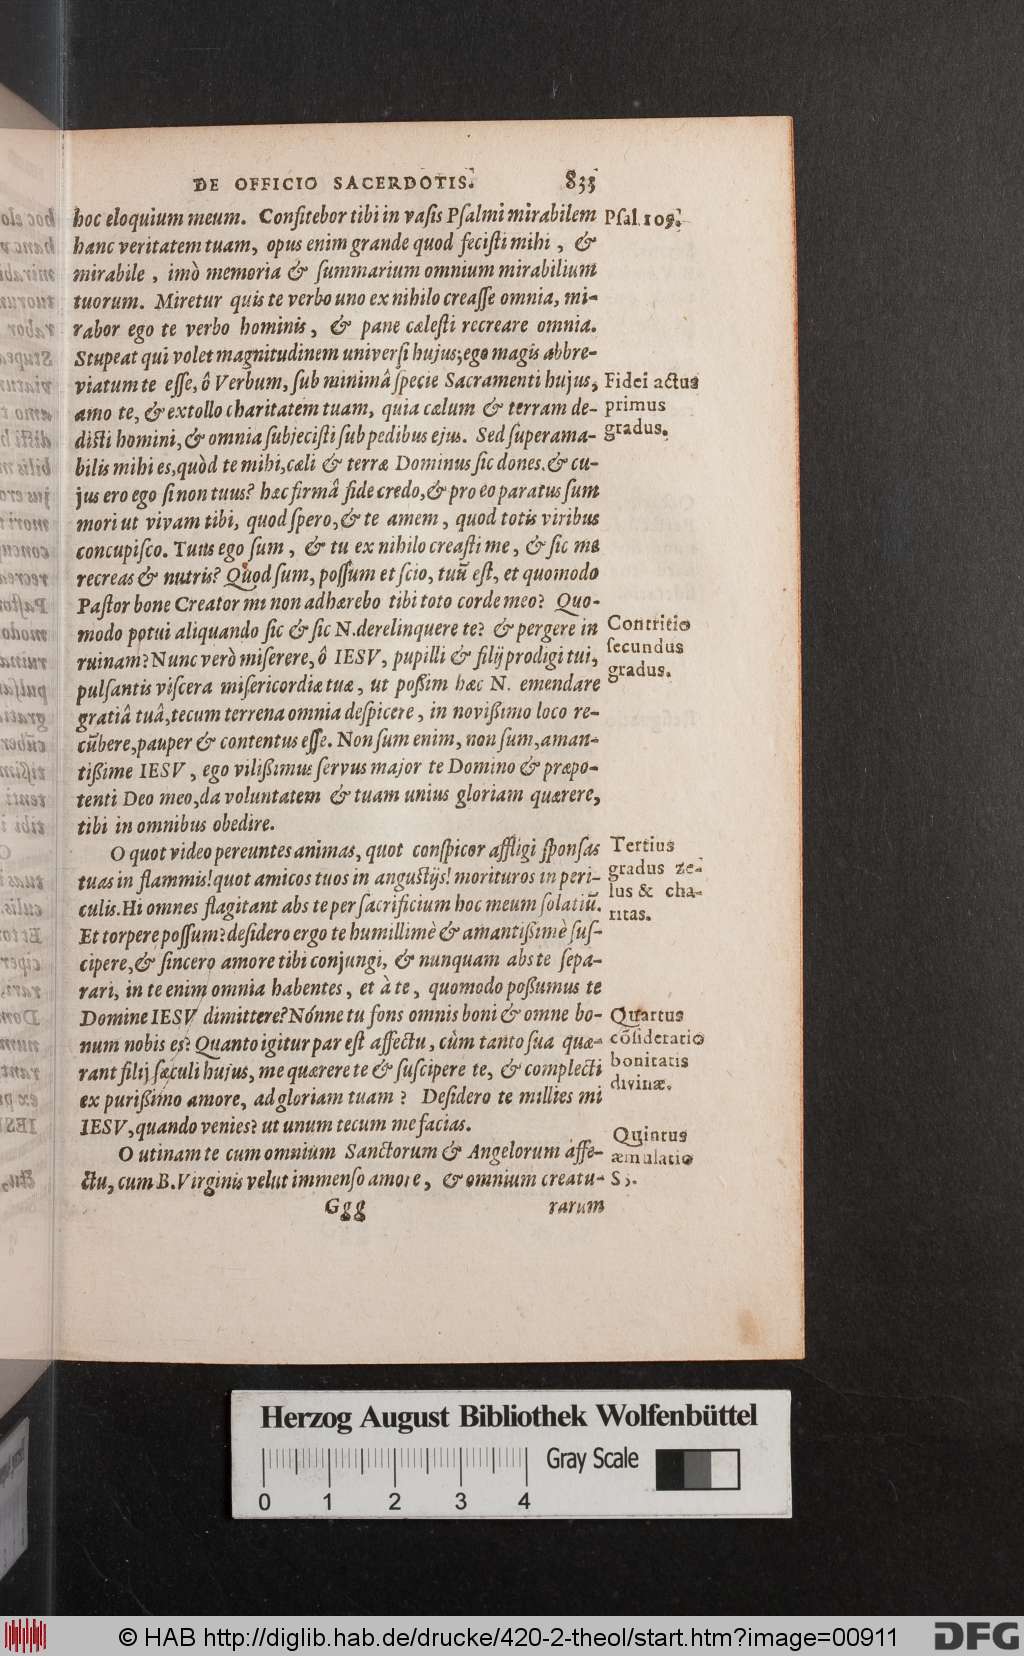 DE OFFICIO SACERDOTIS. 833
hoc eloquium meum. Confitebor tibi in vasis Psalmi mirabilem
Psal. 109.
hanc veritatem tuam, opus enim grande quod fecisti mihi, &
mirabile, imò memoria & summarium omnium mirabilium
tuorum. Miretur quis te verbo uno ex nihilo creasse omnia, mi-
rabor ego te verbo hominis, & pane cælesti recreare omnia.
Stupeat qui volet magnitudinem universi hujus; ego magis abbre-
viatum te esse, ô Verbum, sub minimâ specie Sacramenti hujus,
Fidei actus
primus
gradus.
amo te, & extollo charitatem tuam, quia cælum & terram de-
disti homini, & omnia subjecisti sub pedibus ejus. Sed superama-
bilis mihi es, quòd te mihi, cæli & terræ Dominus sic dones. & cu-
jus ero ego si non tuus? hæc firmâ fide credo, & pro eo paratus sum
mori ut vivam tibi, quod spero, & te amem, quod totis viribus
concupisco. Tuus ego sum, & tu ex nihilo creasti me, & sic me
recreas & nutris? Quod sum, possum et scio, tuũ est, et quomodo
Pastor bone Creator mi non adhærebo tibi toto corde meo? Quo-
modo potui aliquando sic & sic N. derelinquere te? & pergere in
Contritio
secundus
gradus.
ruinam? Nunc verò miserere, ô IESV, pupilli & filij prodigi tui,
pulsantis viscera misericordiæ tuæ, ut possim hæc N. emendare
gratiâ tuâ, tecum terrena omnia despicere, in novissimo loco re-
cũbere, pauper & contentus esse. Non sum enim, non sum, aman-
tissime IESV, ego vilissimus servus major te Domino & præpo-
tenti Deo meo, da voluntatem & tuam unius gloriam quærere,
tibi in omnibus obedire.
O quot video pereuntes animas, quot conspicor affligi sponsas
Tertius
gradus ze-
lus & cha-
ritas.
tuas in flammis! quot amicos tuos in angustijs! morituros in peri-
culis. Hi omnes flagitant abs te per sacrificium hoc meum solatiũ.
Et torpere possum? desidero ergo te humillimè & amantissimè sus-
cipere, & sincero amore tibi conjungi, & nunquam abs te sepa-
rari, in te enim omnia habentes, et à te, quomodo possumus te
Domine IESV dimittere? Nónne tu fons omnis boni & omne bo-
Quartus
cõsideratio
bonitatis
divinæ.
num nobis es? Quanto igitur par est affectu, cùm tanto sua quæ-
rant filij sæculi hujus, me quærere te & suscipere te, & complecti
ex purissimo amore, ad gloriam tuam? Desidero te millies mi
IESV, quando venies? ut unum tecum me facias.
O utinam te cum omnium Sanctorum & Angelorum affe-
Quintus
æmulatio
SS.
ctu, cum B. Virginis velut immenso amore, & omnium creatu-
Ggg rarum
Herzog August Bibliothek Wolfenbüttel
Gray Scale
0 1 2 3 4
© HAB http://diglib.hab.de/drucke/420-2-theol/start.htm?image=00911
DFG